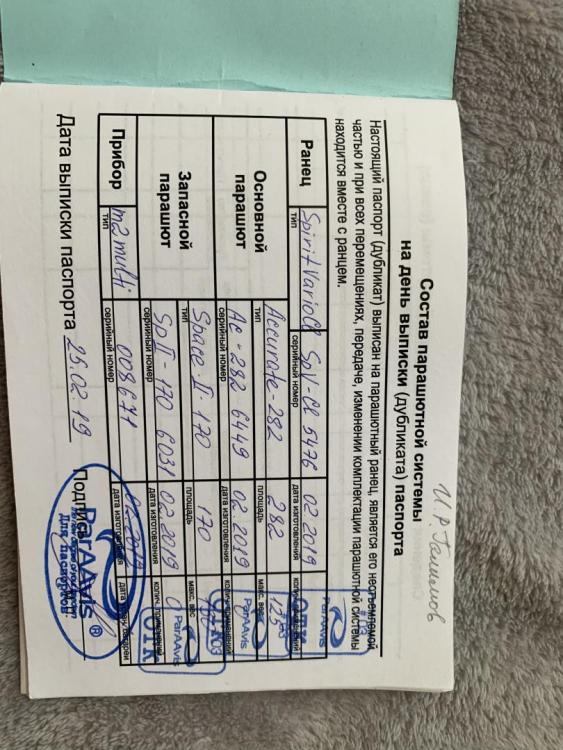 И.Р. Галимов
Состав парашютной системы
на день выписки (дубликата) паспорта
Настоящий паспорт (дубликат) выписан на парашютный ранец, является его неотъемлемой
частью и при всех перемещениях, передаче, изменении комплектации парашютной системы
находится вместе с ранцем.
Ранец
тип Spirit Vario Cl
серийный номер SpV-Cl 5476
дата изготовления 02 2019
Основной парашют
тип Accurate-282
площадь 282
макс. вес 125
серийный номер Ac-282 6449
дата изготовления 02 2019
Запасной парашют
тип Space II-170
площадь 170
макс. вес
серийный номер Sp II-170 6031
дата изготовления 02.2019
Прибор
тип m2 multi
серийный номер 008671
дата изготовления
Дата выписки паспорта 25.02.19
Подпись
ParAAvis
ОТК
ParAAvis
ParAAvis
ОТК
ParAAvis ®
Для паспортов